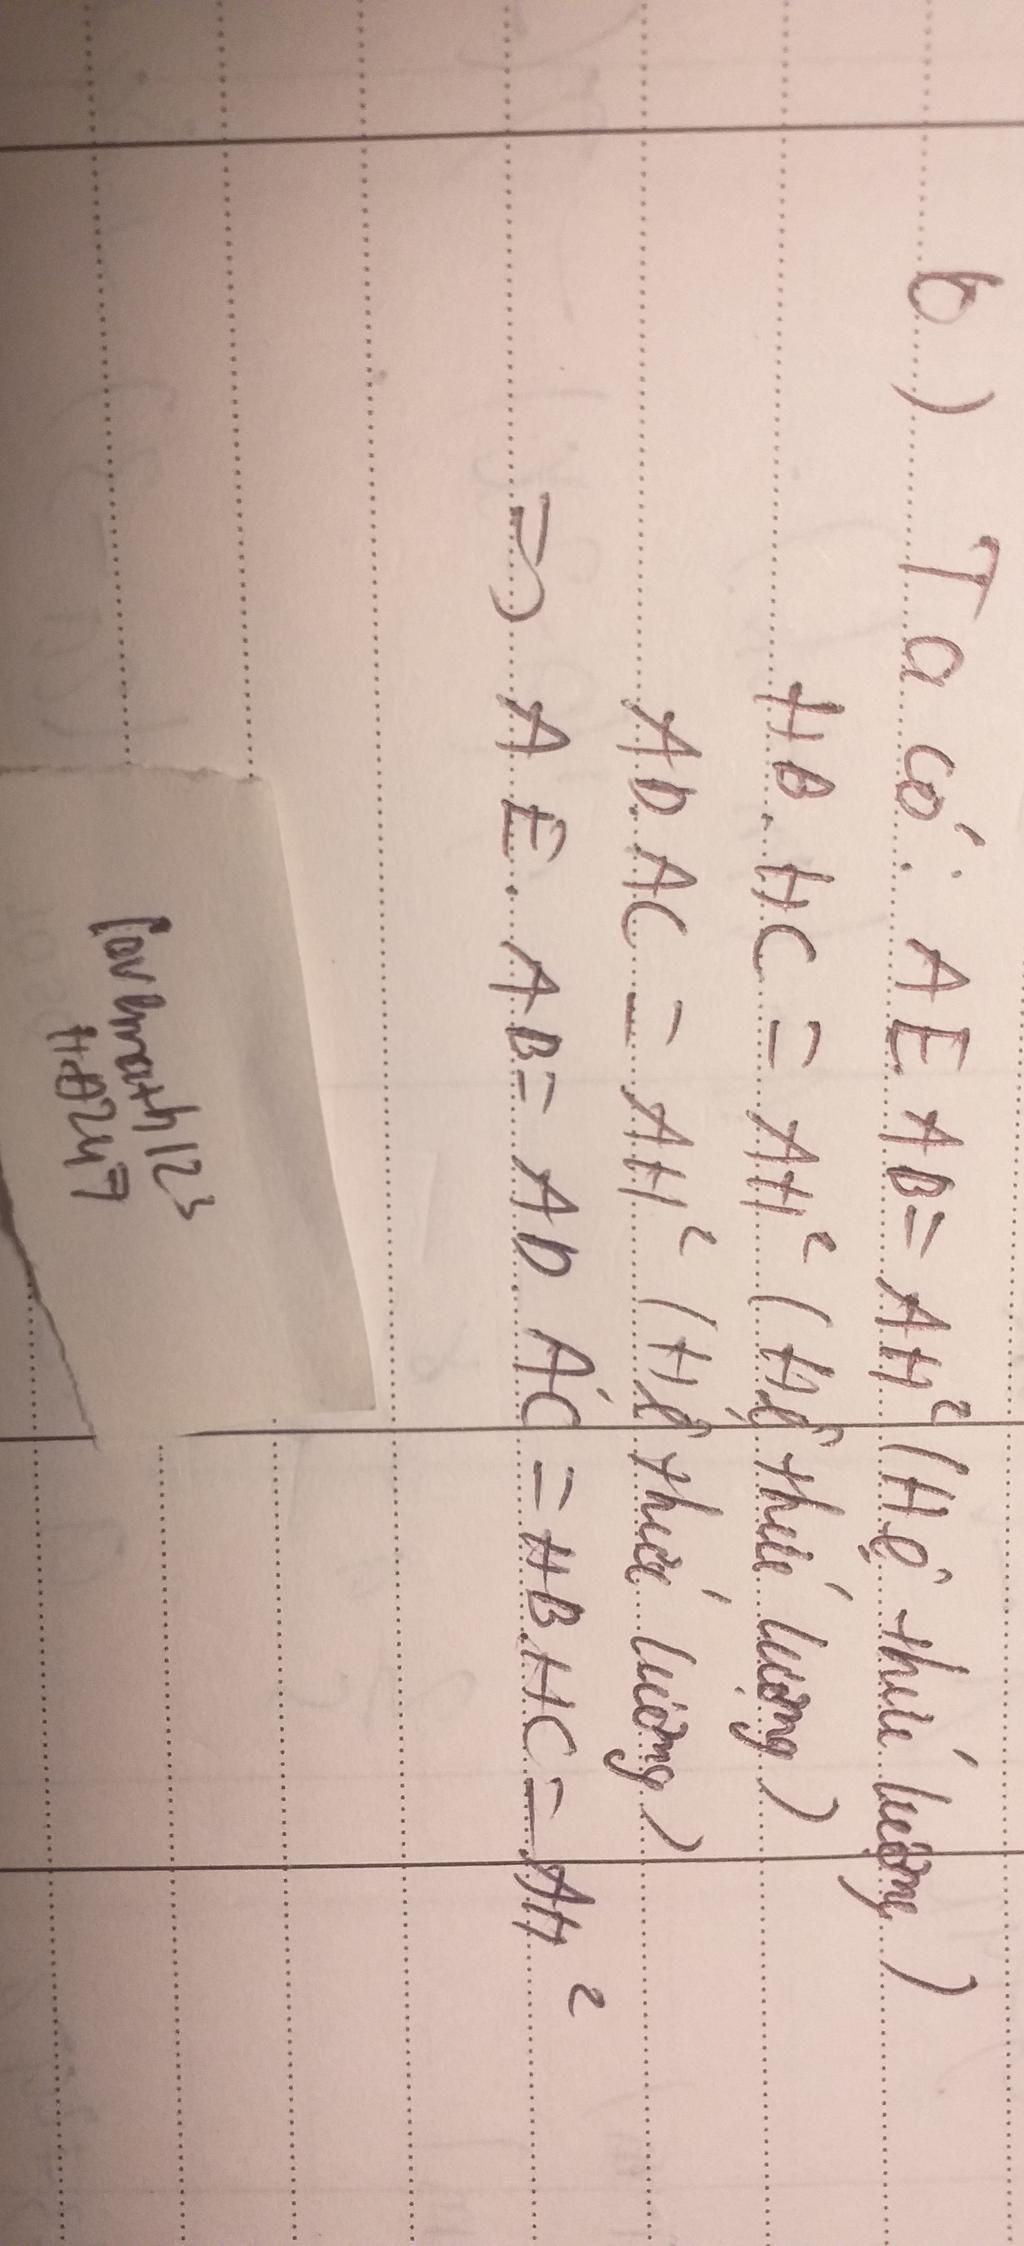 b) Ta có: AE AB = AH² (Hệ thức lượng)
HB. HC = AH² (Hệ thức lượng)
AD. AC = AH² (Hệ thức lượng)
=> AE. AB = AD. AC = HB.HC = AH²
lovemath123
Hd247